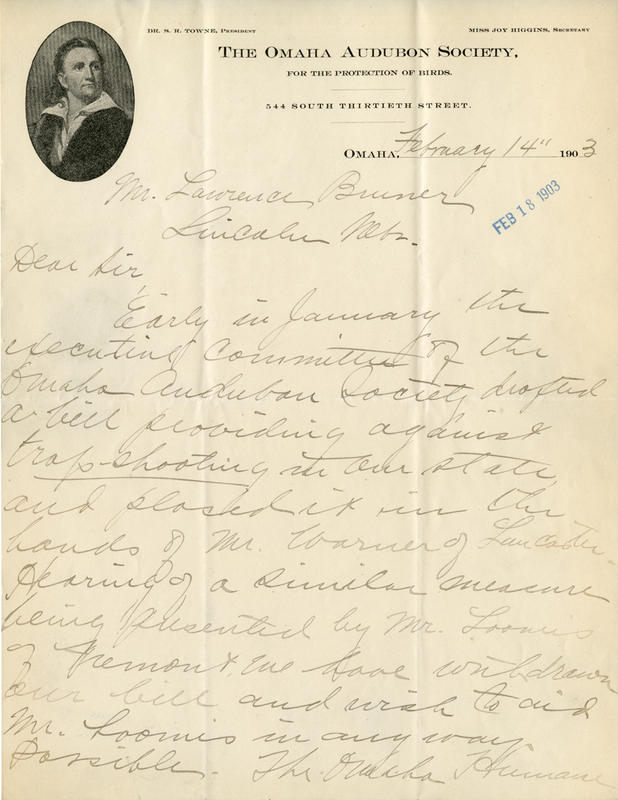 DR. S. R. TOWNE, PRESIDENT
MISS JOY HIGGINS, SECRETARY
THE OMAHA AUDUBON SOCIETY,
FOR THE PROTECTION OF BIRDS.
544 SOUTH THIRTIETH STREET.
OMAHA, February 14" 1903
FEB 18 1903
Mr. Lawrence Bruner
Lincoln Nebr.
Dear Sir,
Early in January the
executive committee of the
Omaha Audubon Society drafted
a bill providing against
trap-shooting in our state
and placed it in the
hands of Mr. Warner of Lancaster.
Hearing of a similar measure
being presented by Mr. Loomis
of Fremont, we have withdrawn
our bill and wish to aid
Mr. Loomis in any way
possible. The Omaha Humane